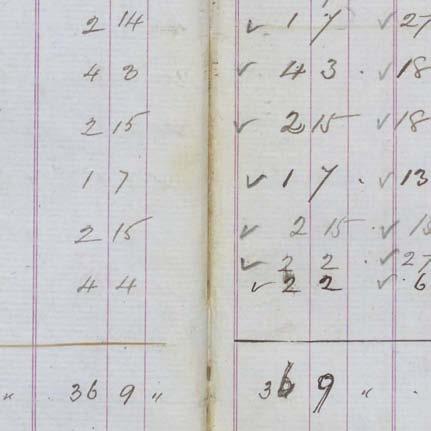 2 14 ✓ 1 7 ✓ 27
4 3 ✓ 4 3 · ✓ 18
2 15 ✓ 2 15 ✓ 18
1 7 ✓ 1 7 · ✓ 13
2 15 ✓ 2 15 · ✓
✓ 2 2 · ✓ 27
4 4 ✓ 2 2 ✓ · 6
" 36 9 " 36 9 " ·